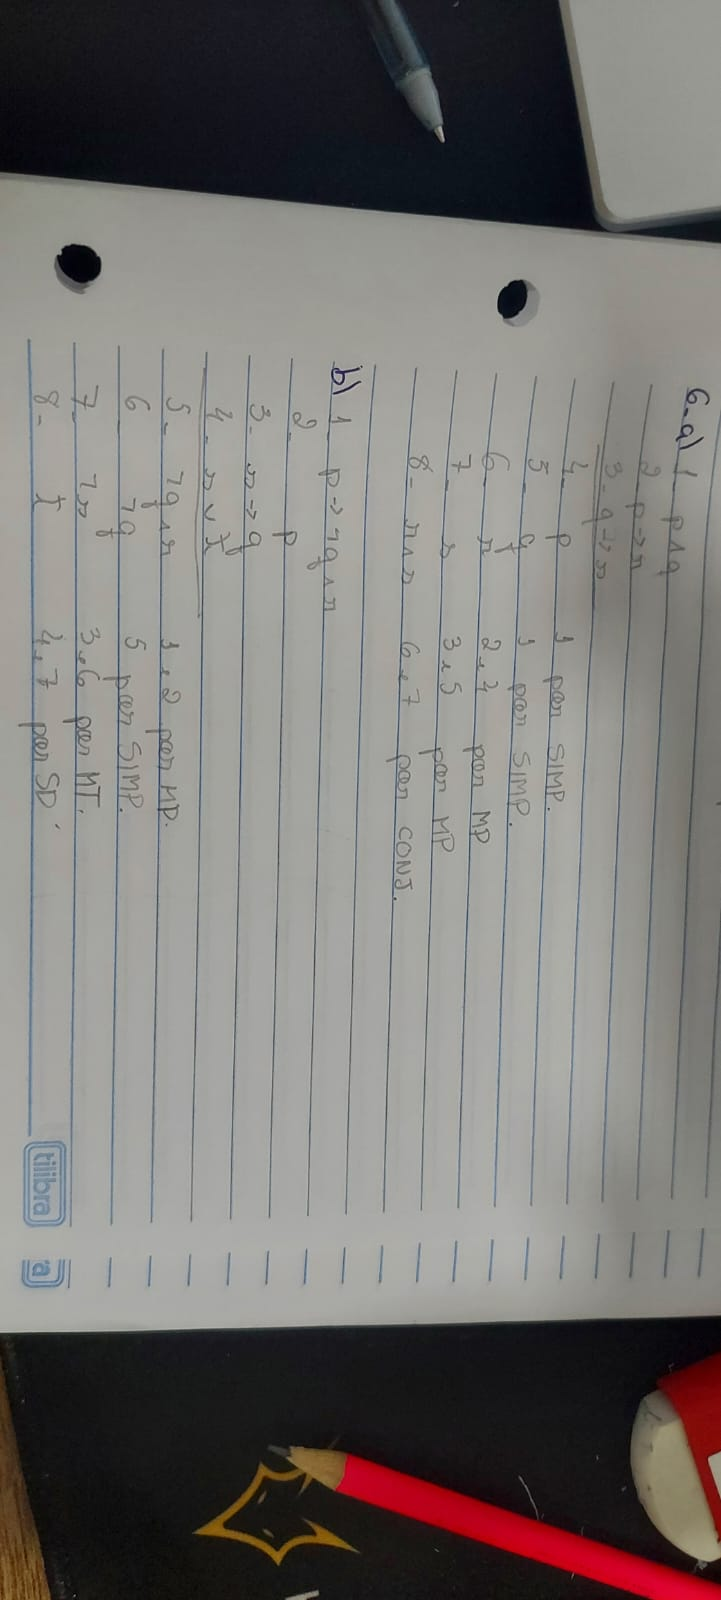 6-a) 1 p∧q
2 p→r
3- q→s
4 p 1 por SIMP.
5 q 1 por SIMP.
6 r 2 e 4 por MP
7 s 3 e 5 por MP
8- r∧s 6 e 7 por CONJ.
b) 1 p→¬q∧r
2- p
3- s→q
4- s∨t
5- ¬q∧r 1 e 2 por MP.
6 ¬q 5 por SIMP.
7- ¬s 3 e 6 por MT.
8- t 4 e 7 por SD.
tilibra